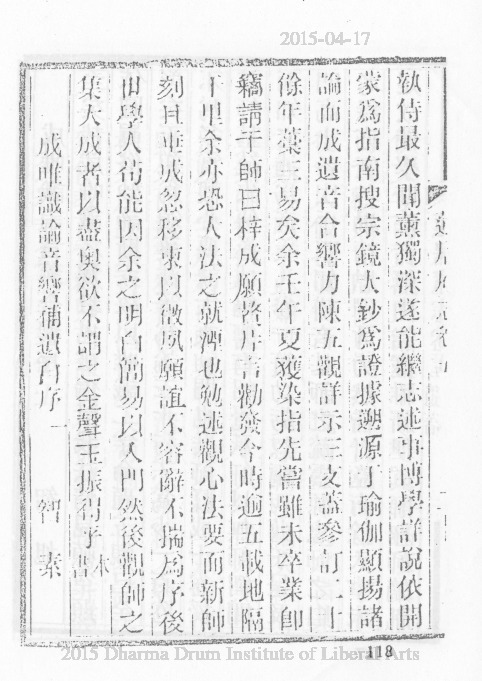 2015-04-17
執侍最久聞薰獨深遂能繼志述事博學詳說依開
蒙爲指南搜宗鏡大鈔爲證據遡源于瑜伽顯揚諸
論而成遺音合響力陳五觀詳示三支蓋參訂二十
餘年藁三易矣余壬午夏獲染指先嘗雖未卒業卽
竊請于師曰梓成願啓片言勸發今時逾五載地隔
千里余亦恐人法之就湮也勉述觀心法要而新師
刻且垂成忽移柬以徵夙願誼不容辭不揣爲序後
世學人苟能因余之明白簡易以入門然後觀師之
集大成者以盡奧欲不謂之金聲玉振得乎 本書
成唯識論音響補遺自序 智素
118
2015 Dharma Drum Institute of Liberal Arts